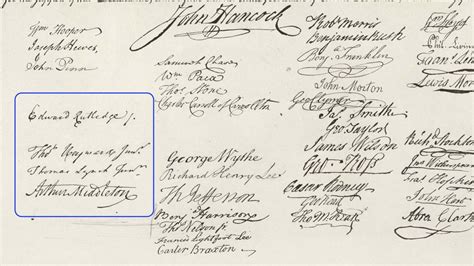 John Hancock
Wm Hooper
Joseph Hewes
John Penn
Edward Rutledge /.
Thos Heyward Junr.
Thomas Lynch Junr.
Arthur Middleton
Samuel Chase
Wm Paca
Thos Stone
Charles Carroll of Carrollton
George Wythe
Richard Henry Lee
Th Jefferson
Benj Harrison
Thos Nelson jr
Francis Lightfoot Lee
Carter Braxton
Robt Morris
Benjamin Rush
Benj. Franklin
John Morton
Geo Clymer
Jas Smith
Geo Taylor
James Wilson
Geo. Ross
Caesar Rodney
Geo Read
Tho M:Kean
Lewis Mor
Richd Stockton
Jno Witherspoon
John Hart
Abra Clark